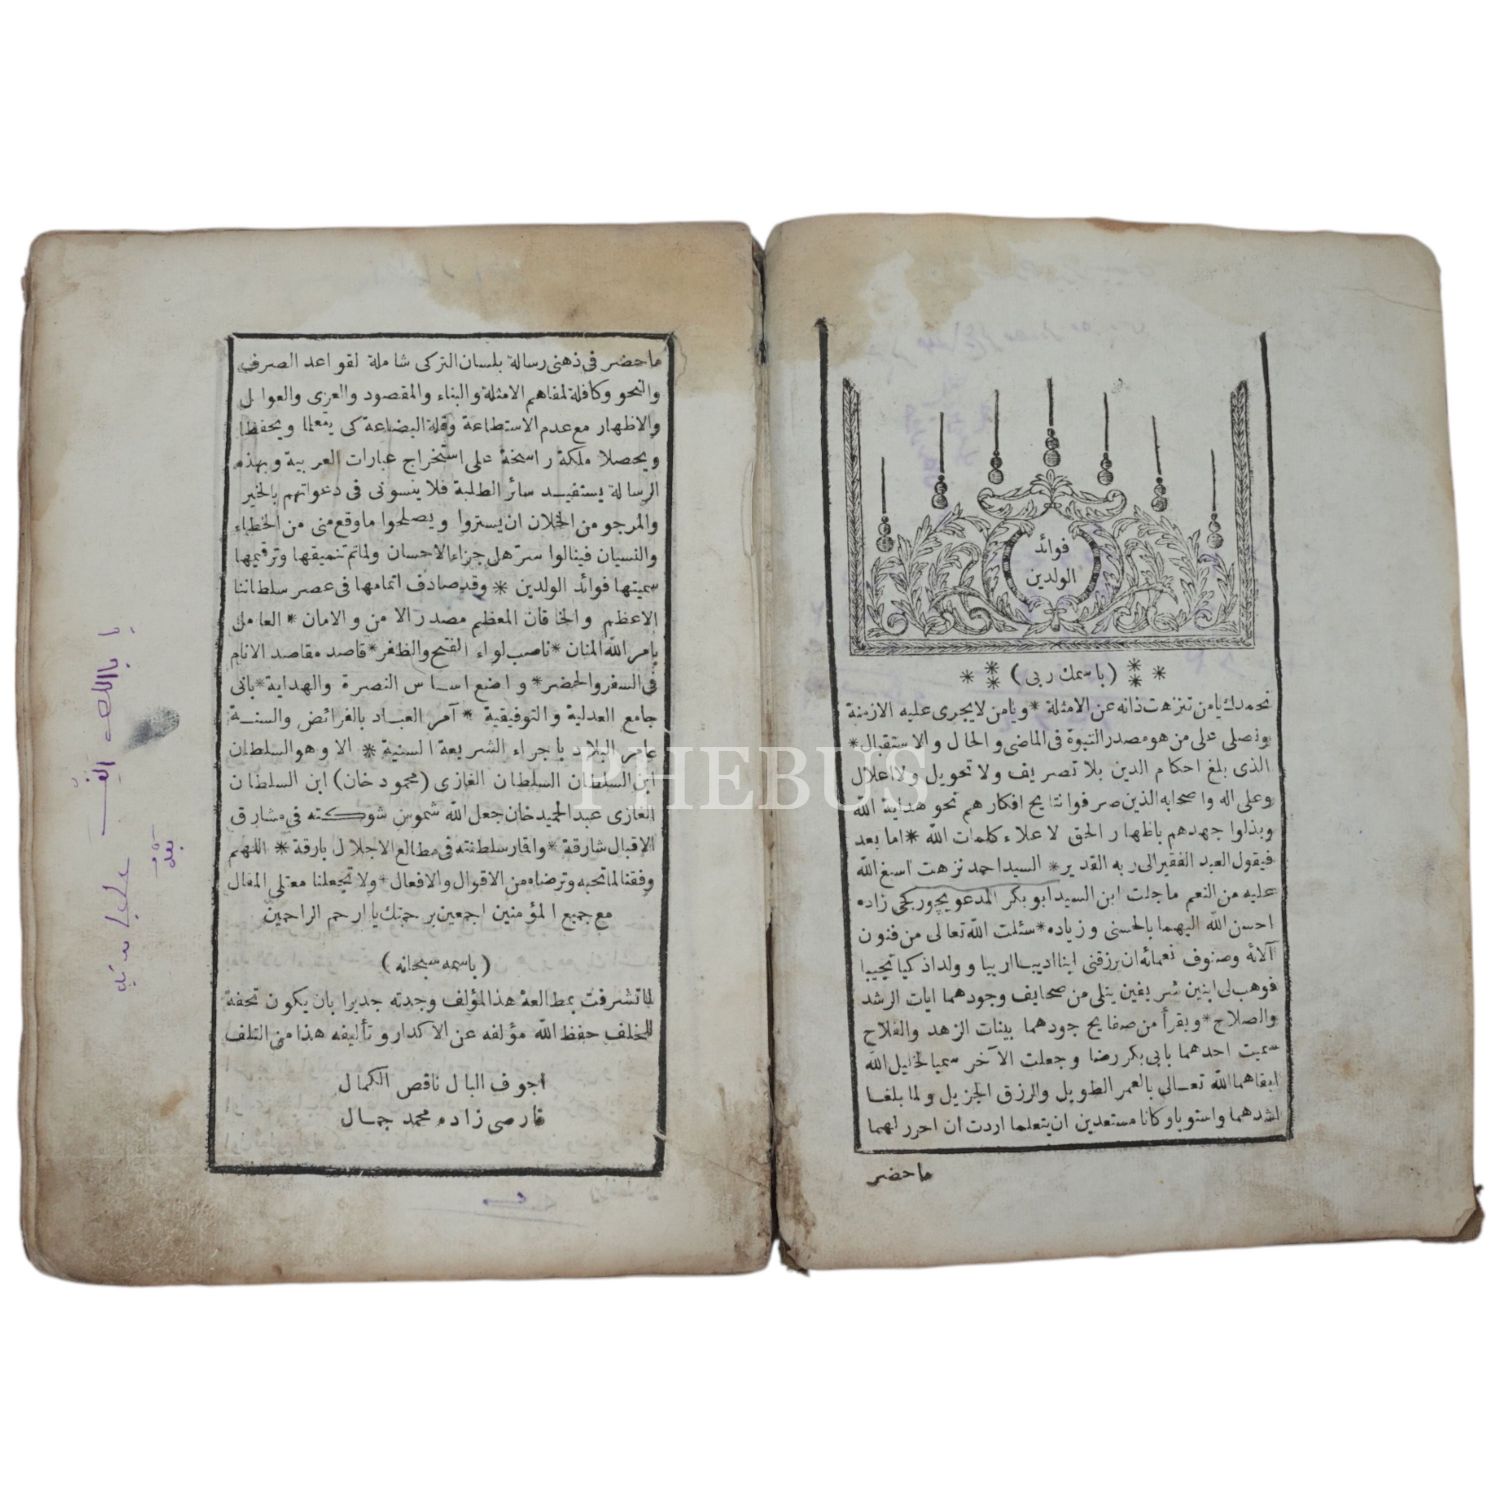 فوائد
الولدين
(باسمك ربى)
نحمدك يامن تنزهت ذاته عن الامثلة * ويامن لايجرى عليه الازمنة
ونصلى على من هو مصدر النبوة فى الماضى والحال والاستقبال *
الذى بلغ احكام الدين بلا تصريف ولا تحويل ولا اعلال
وعلى اله واصحابه الذين صرفوا نتايح افكارهم نحو هداية الله
وبذلوا جهدهم باظهار الحق لاعلاء كلمات الله * اما بعد
فيقول العبد الفقير الى ربه القدير * السيد احمد نزهت اسبغ الله
عليه من النعم ماجلت ابن السيد ابو بكر المدعو بچوربكجى زاده
احسن الله اليهما بالحسنى وزياده * سئلت الله تعالى من فنون
آلائه وصنوف نعمائه ان يرزقنى ابنا اديبا اريبا وولدا ذكيا نجيبا
فوهب لى ابنين شريفين يتلى من صحايف وجودهما ايات الرشد
والصلاح * ويقرأ من صفايح جودهما بينات الزهد والفلاح
سميت احدهما بابى بكر رضا وجعلت الآخر سميا لخليل الله
ابقاهما الله تعالى بالعمر الطويل والرزق الجزيل ولما بلغا
اشدهما واستويا وكانا مستعدين ان يتعلما اردت ان احرر لهما
ماحضر
ماحضر فى ذهنى رسالة بلسان التركى شاملة لقواعد الصرف
والنحو وكافلة لمفاهيم الامثلة والبناء والمقصود والعزى والعوامل
والاظهار مع عدم الاستطاعة وقلة البضاعة كى يتعلما ويحفظا
ويحصلا ملكة راسخة على استخراج عبارات العربية وبهذه
الرسالة يستفيد سائر الطلبة فلا ينسونى فى دعواتهم بالخير
والمرجو من الخلان ان يستروا ويصلحوا ماوقع منى من الخطاء
والنسيان فينالوا سر هل جزاء الاحسان ولما تم تنميقها وترقيمها
سميتها فوائد الولدين * وقد صادف اتمامها فى عصر سلطاننا
الاعظم والخاقان المعظم مصدر الامن والامان * العامل
بامر الله المنان * ناصب لواء الفتح والظفر * قاصد مقاصد الانام
فى السفر والحضر * واضع اساس النصرة والهداية * بانى
جامع العدلية والتوفيقية * آمر العباد بالفرائض والسنة
عامر البلاد باجراء الشريعة السنية * الا وهو السلطان
ابن السلطان السلطان الغازى (محمود خان) ابن السلطان
الغازى عبد الحميد خان جعل الله شموس شوكته فى مشارق
الاقبال شارقة * واقمار سلطنته فى مطالع الاجلال بارقة * اللهم
وفقنا لما تحبه وترضاه من الاقوال والافعال * ولا تجعلنا معتلى المقال
مع جميع المؤمنين اجمعين برحمتك يا ارحم الراحمين
(باسمه سبحانه)
لما تشرفت بمطالعة هذا المؤلف وجدته جديرا بان يكون تحفة
للخلف حفظ الله مؤلفه عن الاكدار وتأليفه هذا من التلف
اجوف البال ناقص الكمال
قارصى زاده محمد جمال
PHEBUS